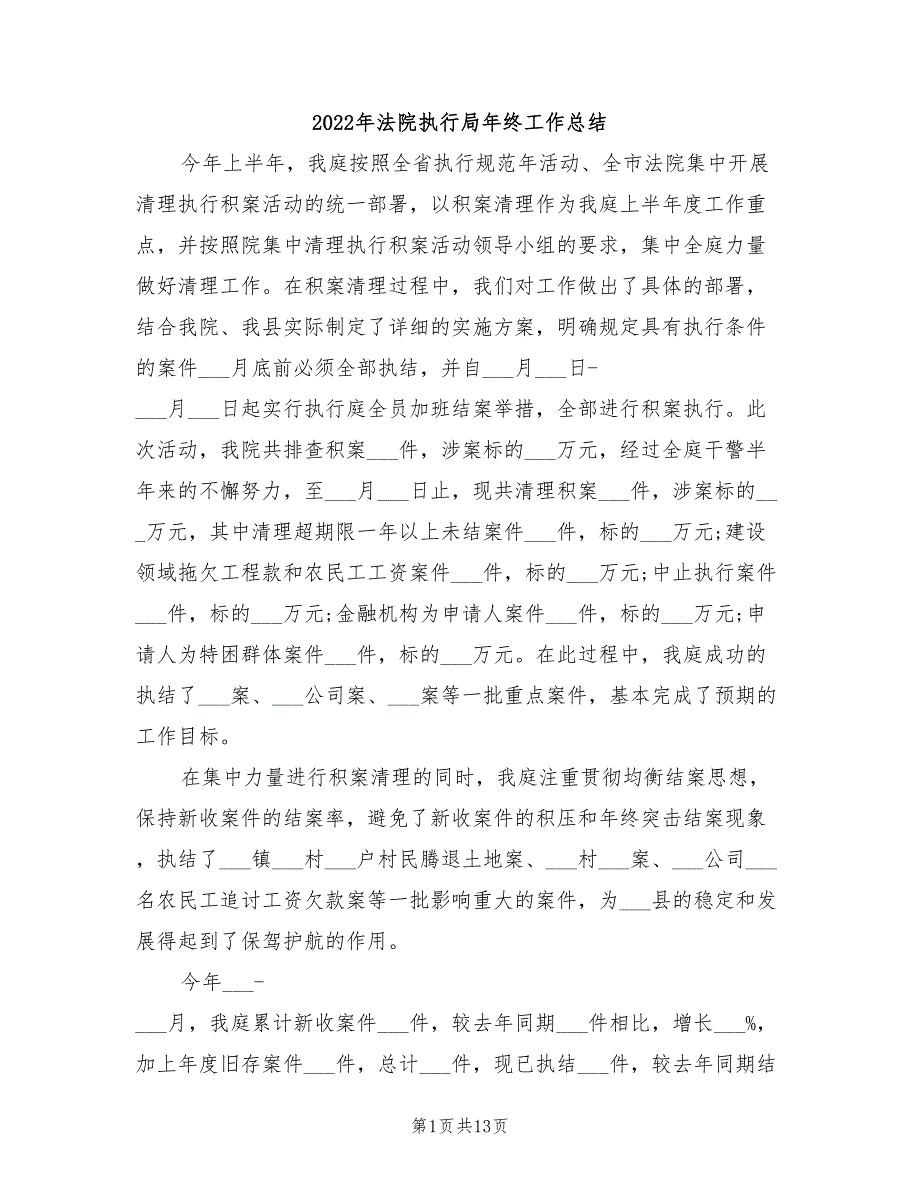 2022年法院执行局年终工作总结
今年上半年，我庭按照全省执行规范年活动、全市法院集中开展
清理执行积案活动的统一部署，以积案清理作为我庭上半年度工作重
点，并按照院集中清理执行积案活动领导小组的要求，集中全庭力量
做好清理工作。在积案清理过程中，我们对工作做出了具体的部署，
结合我院、我县实际制定了详细的实施方案，明确规定具有执行条件
的案件___月底前必须全部执结，并自___月___日-
___月___日起实行执行庭全员加班结案举措，全部进行积案执行。此
次活动，我院共排查积案___件，涉案标的___万元，经过全庭干警半
年来的不懈努力，至___月___日止，现共清理积案___件，涉案标的__
_万元，其中清理超期限一年以上未结案件___件，标的___万元;建设
领域拖欠工程款和农民工工资案件___件，标的___万元;中止执行案件
___件，标的___万元;金融机构为申请人案件___件，标的___万元;申
请人为特困群体案件___件，标的___万元。在此过程中，我庭成功的
执结了___案、___公司案、___案等一批重点案件，基本完成了预期的
工作目标。
在集中力量进行积案清理的同时，我庭注重贯彻均衡结案思想，
保持新收案件的结案率，避免了新收案件的积压和年终突击结案现象
，执结了___镇___村___户村民腾退土地案、___村___案、___公司___
名农民工追讨工资欠款案等一批影响重大的案件，为___县的稳定和发
展得起到了保驾护航的作用。
今年___-
___月，我庭累计新收案件___件，较去年同期___件相比，增长___%，
加上年度旧存案件___件，总计___件，现已执结___件，较去年同期结
第1页共13页